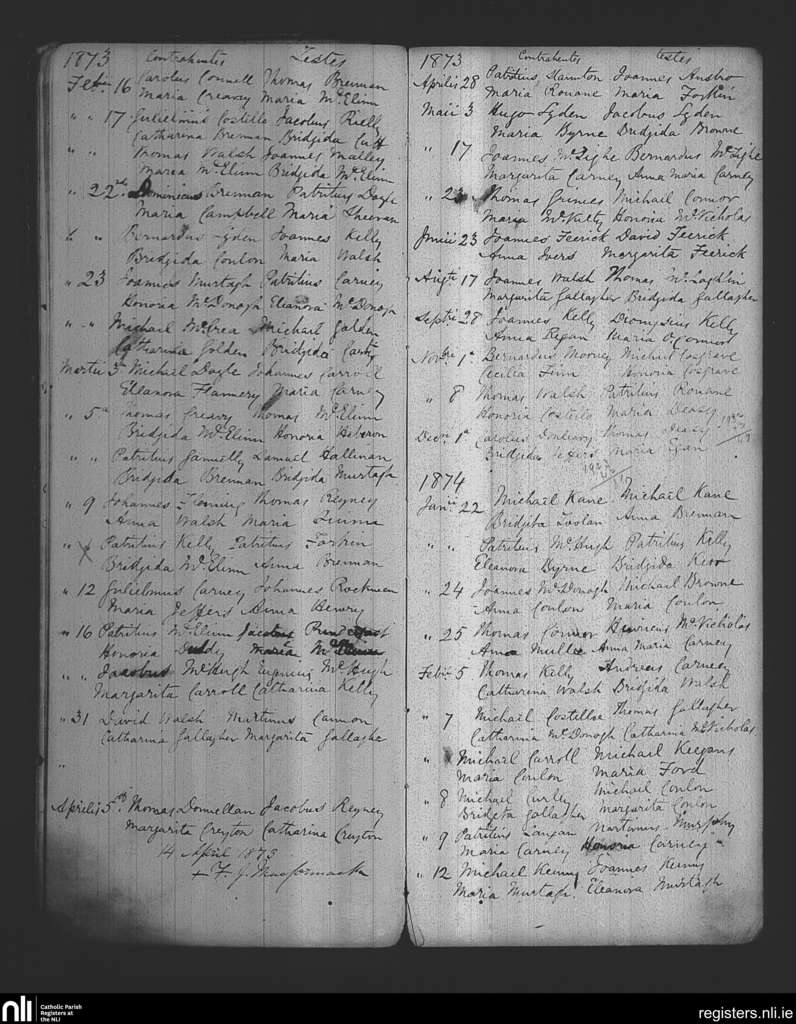 1873 Contrahentes Testes
Feb 16 Carolus Connell Thomas Brennan
Maria Creavy Maria McElinn
" " 17 Gulielmus Costello Jacobus Rielly
Catharina Brennan Bridgida
" " Thomas Walsh Joannes Malley
Maria McElinn Bridgida McElinn
" 22nd Dominicus Brennan Patritius Doyle
Maria Campbell Maria Sheeran
" " Bernardus Joannes Kelly
Bridgida Conlon Maria Walsh
" 23 Joannes Murtagh Patritius Carney
Honoria McDonagh Eleanora McDonagh
" " Michael Michael Golden
Catharina Golden Bridgida
Martii 3 Michael Doyle Johannes Carroll
Eleanora Flannery Maria Carney
" 5 Thomas Creavy Thomas McElinn
Bridgida McElinn Honoria
" " Patritius Samuel Hallinan
Bridgida Brennan Bridgida Murtagh
" 9 Johannes Fleming Thomas Reyney
Anna Walsh Maria
" Patritius Kelly Patritius
Bridgida McElinn Anna Brennan
" 12 Gulielmus Carney Johannes
Maria Jeffers Anna Henry
" 16 Patritius McElinn Jacobus
Honoria Maria
" " Jacobus McHugh McHugh
Margarita Carroll Catharina Kelly
" 31 David Walsh Martinus Cannon
Catharina Gallagher Margarita Gallagher
"
Aprilis 5th Thomas Donnellan Jacobus Reyney
Margarita Creyton Catharina Creyton
14 April 1873
+ F. J. MacCormack
1873 Contrahentes testes
Aprilis 28 Patritius Staunton Joannes Ansbro
Maria Rouane Maria
Maii 3 Hugo Jacobus
Maria Byrne Bridgida Browne
" 17 Joannes McTighe Bernardus McTighe
Margarita Carney Anna Maria Carney
" 23 Thomas Grimes Michael Connor
Maria McKelty Honoria McNicholas
Junii 23 Joannes Feerick David Feerick
Anna Ivers Margarita Feerick
Augti 17 Joannes Walsh Thomas McLoghlin
Margarita Gallagher Bridgida Gallagher
Septri 28 Joannes Kelly Dionysius Kelly
Anna Regan Maria O'Connor
Novbri 1 Bernardus Mooney Michael Cosgrave
Cecilia Finn Honoria Cosgrave
" 8 Thomas Walsh Patritius Rouane
Honoria Costello Maria Deasy
Decr 1 Carolus Thomas Deasy
Bridgida Jeffers Maria Egan
1874
Janii 22 Michael Kane Michael Kane
Bridgida Toolan Anna Brennan
" " Patritius McHugh Patritius Kelly
Eleanora Byrne Bridgida
" 24 Joannes McDonagh Michael Browne
Anna Conlon Maria Conlon
" 25 Thomas Connor Henricus McNicholas
Anna Mullee Anna Maria Carney
Febri 5 Thomas Kelly Andreas Carney
Catharina Walsh Bridgida Walsh
" 7 Michael Costelloe Thomas Gallagher
Catharina McDonogh Catharina McNicholas
" Michael Carroll Michael Keegans
Maria Conlon Maria Ford
" 8 Michael Curley Michael Conlon
Bridgeta Gallagher Margarita Conlon
" 9 Patritius Langan Martinus Murphy
Maria Carney Honoria Carney
" 12 Michael Kenny Joannes Kenny
Maria Murtagh Eleanora Murtagh
nli Catholic Parish
Registers at
the NLI
registers.nli.ie